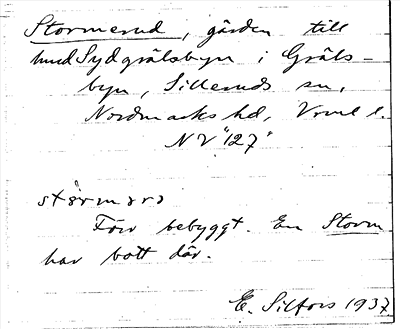 Stormerud, gården till
hmdSydgrälsbyn i Gräls-
byn, Silleruds sn,
Nordmarks hd, Vrml l.
NV "127"
stårmərə
Förr bebyggt. En Storm
har bott där.
E. Silfors 1937